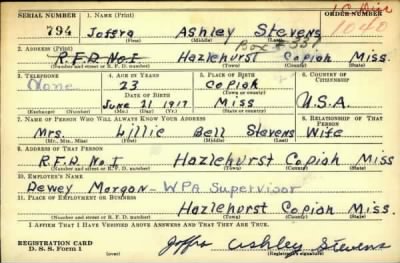 SERIAL NUMBER 1. NAME (Print) ORDER NUMBER
794 Joffra Ashley Stevens 1040
(First) (Middle) (Last)
2. ADDRESS (Print) Box # 337
R.F.D. No. I Hazlehurst Copiah Miss.
(Number and street or R. F. D. number) (Town) (County) (State)
3. TELEPHONE 4. AGE IN YEARS 5. PLACE OF BIRTH 6. COUNTRY OF CITIZENSHIP
None 23 Copiah
DATE OF BIRTH (Town or county)
June 21 1917 Miss U.S.A.
(Exchange) (Number) (Mo.) (Day) (Yr.) (State or country)
7. NAME OF PERSON WHO WILL ALWAYS KNOW YOUR ADDRESS 8. RELATIONSHIP OF THAT PERSON
Mrs. Lillie Bell Stevens Wife
(Mr., Mrs., Miss) (First) (Middle) (Last)
9. ADDRESS OF THAT PERSON
R.F.D. No. I Hazlehurst Copiah Miss
(Number and street or R. F. D. number) (Town) (County) (State)
10. EMPLOYER'S NAME
Dewey Morgan - WPA Supervisor
11. PLACE OF EMPLOYMENT OR BUSINESS
Hazlehurst Copiah Miss.
(Number and street or R. F. D. number) (Town) (County) (State)
I AFFIRM THAT I HAVE VERIFIED ABOVE ANSWERS AND THAT THEY ARE TRUE.
REGISTRATION CARD
D. S. S. Form 1 Joffra Ashley Stevens
(Registrant's signature)